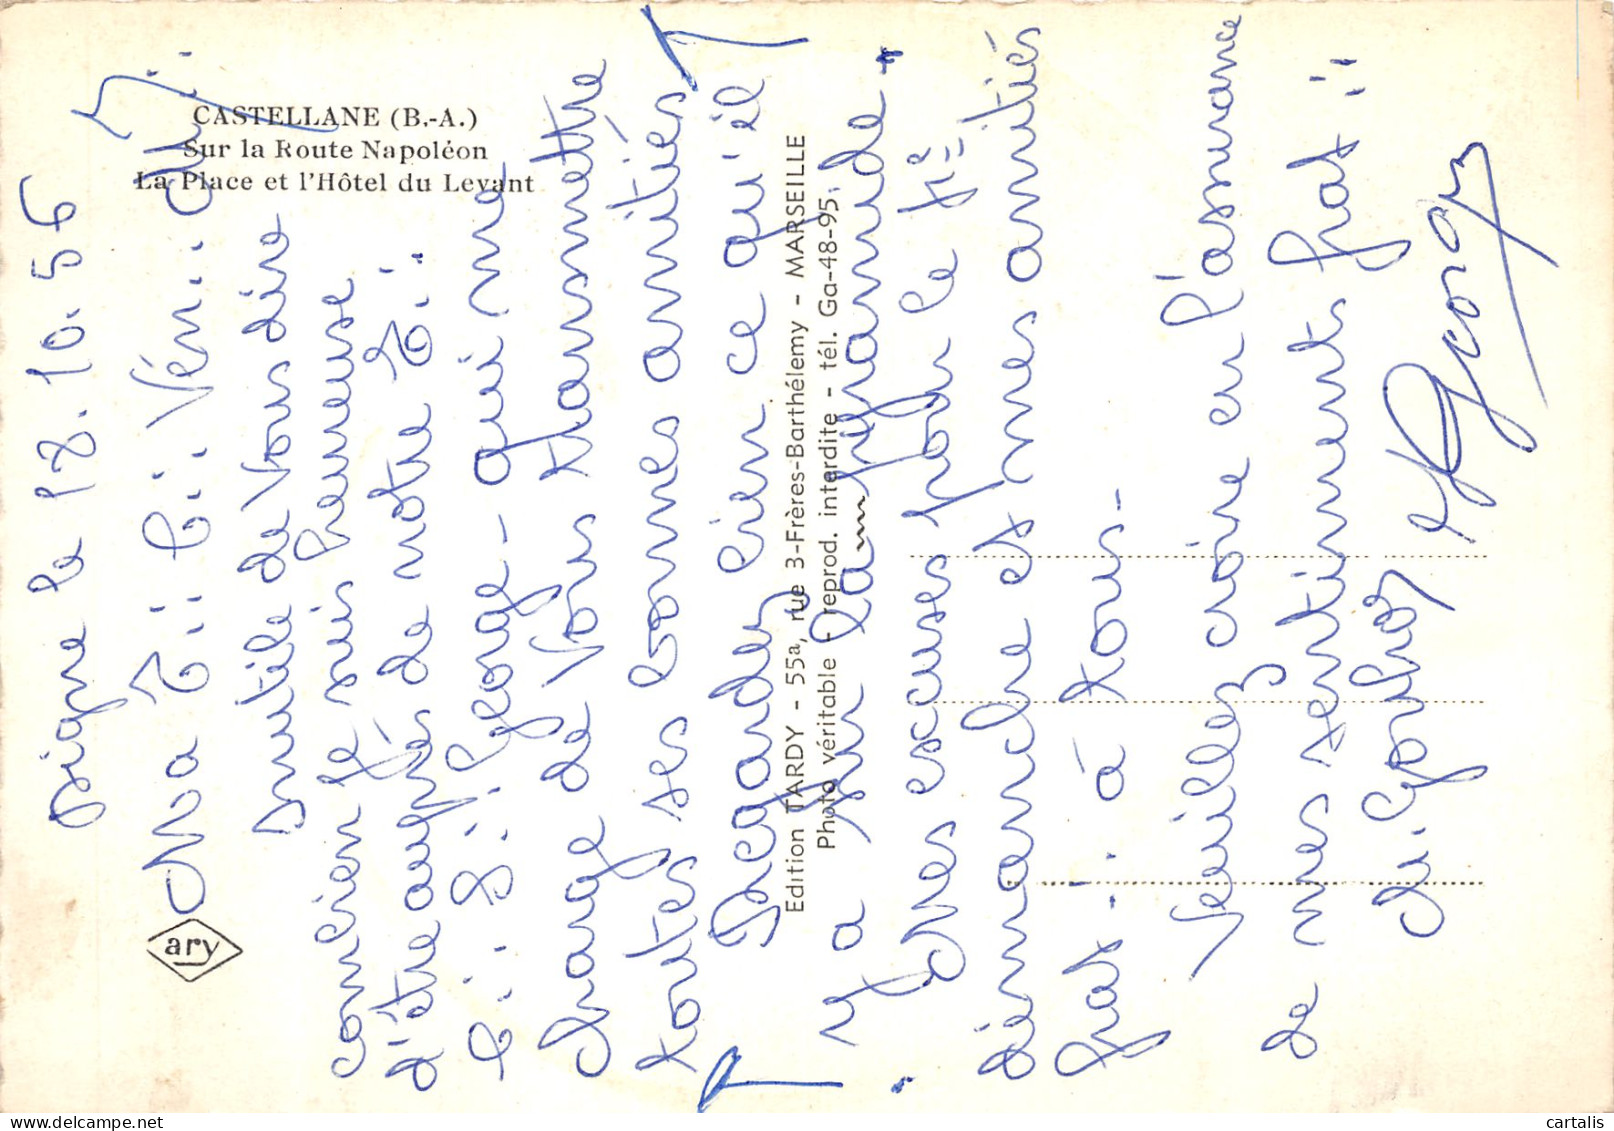 CASTELLANE (B.-A.)
Sur la Route Napoléon
La Place et l'Hôtel du Levant
ary
Edition TARDY - 55a, rue 3-Frères-Barthélemy - MARSEILLE
Photo véritable - reprod. interdite - tél. Ga-48-95.
Digne le 18.10.56
Ma T∴ C∴ Vén∴
Inutile de Vous dire
combien je suis heureuse
d'être auprès de notre T∴
C∴ S∴ George - qui me
charge de Vous transmettre
toutes ses bonnes amitiés
Regardez bien ce qu'il
y a sur la pyramide -
Mes excuses pour le 1er
dimanche et mes amitiés
frat∴ à tous -
Veuillez croire en l'assurance
de mes sentiments frat∴
George
cartalis